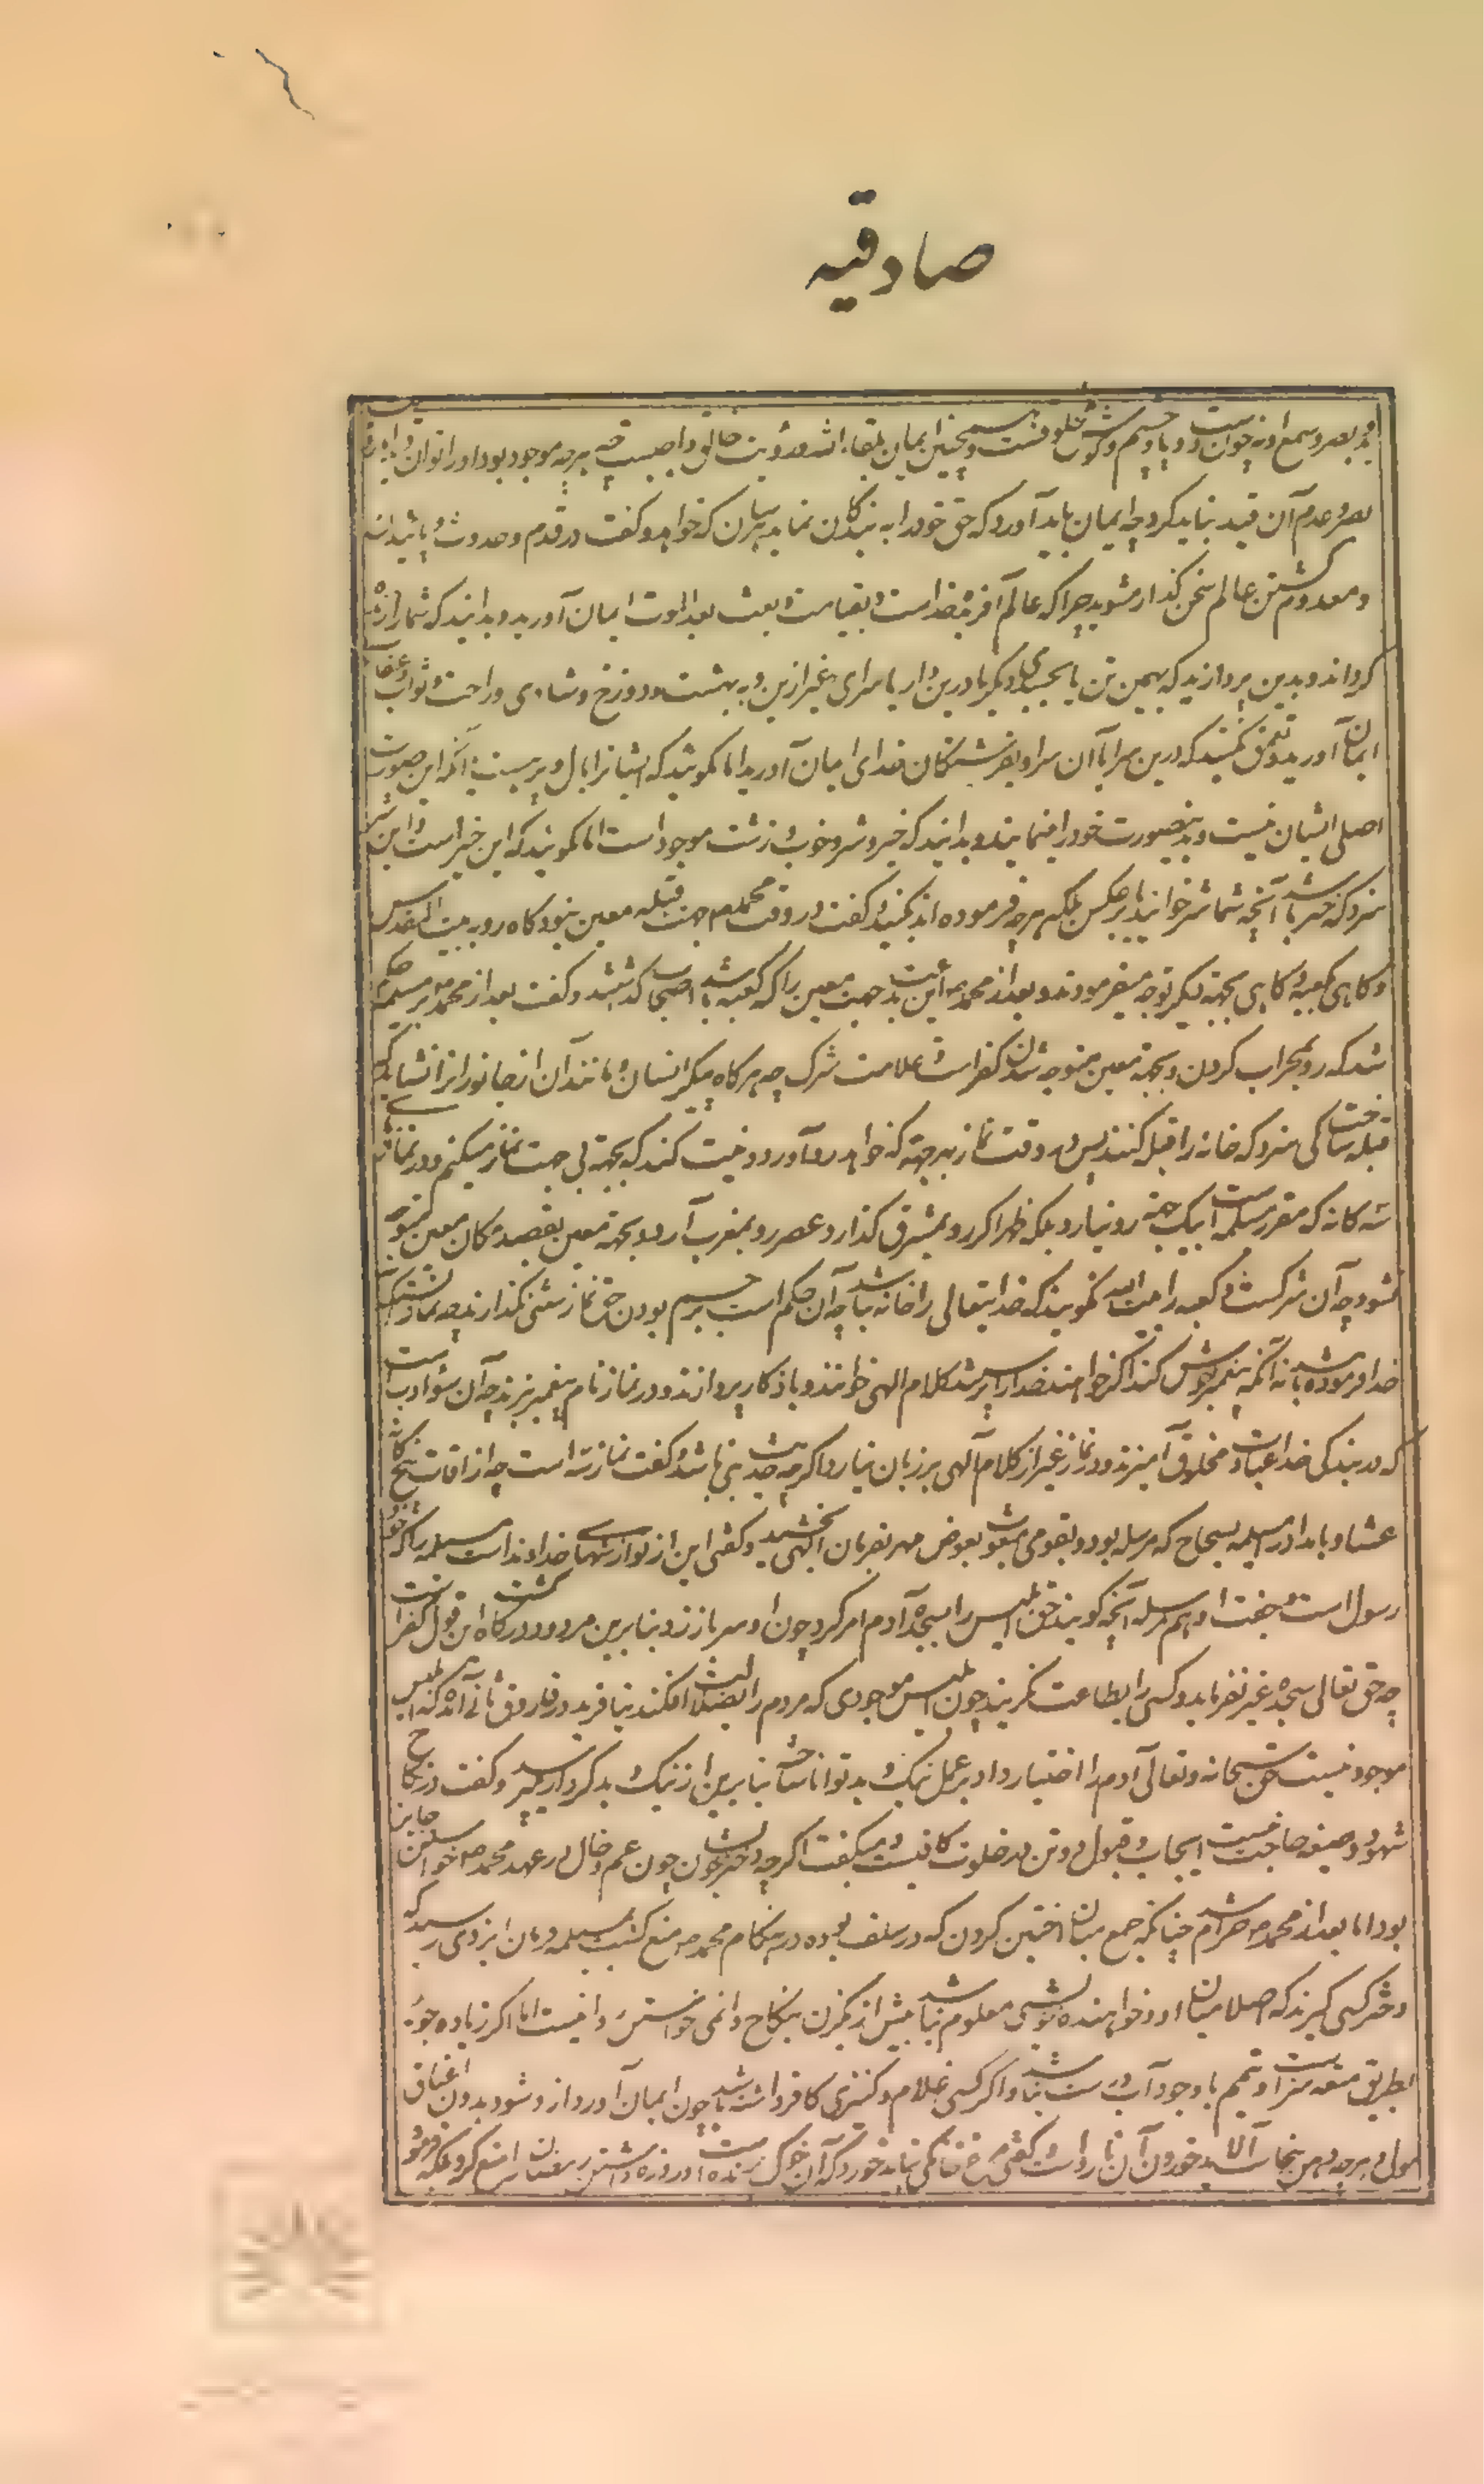 صادقیه
بصر و سمع او نه چون دست و پا و چشم و گوش مخلوقست و همچنین ایمان بلقاء الله و رؤیت خالق واجبست چه هرچه موجود بود او را توان دید
بصر و عدم آن قید نباید کرد چه ایمان باید آورد که حق خود را به بندگان نماید بهرسان که خواهد و گفت در قدم و حدوث و پائیدن
و معدوم گشتن عالم سخن گذار مشوید چرا که عالم آفریده خداست و بقیامت و بعث بعد الموت ایمان آورید و بدانید که شما را زنده
گرداند و بدین مپردازید که بهمین تن یا بجسدی دیگر یا درین دار یا سرای غیر ازین و به بهشت و دوزخ و شادی و راحت و ثواب و عقاب
ایمان آورید و تعمق مکنید که درین سرا یا آن سرا و بفرشتگان خدای ایمان آورید اما مگوئید که ایشانرا بال و پر هست یا آنکه این صورت
اصلی ایشان نیست و بدینصورت خود را نمایند و بدانید که خیر و شر و خوب و زشت موجود است اما مگوئید که این خیر است و این شر
سزد که خیر باشد آنچه شما شر خوانید یا برعکس بلکه هرچه فرموده اند بکنید و گفت در وقت محمد صلعم جهت قبله معین نبود گاه رو به بیت المقدس
و گاهی کعبه و گاهی بجهة دیگر توجه میفرمودند و بعد از محمد ص این بدعت جهت معین را که کعبه باشد اصحاب گذاشتند و گفت بعد از محمد ص بر مسیلمه حکم
شد که رو بمحراب کردن و بجهة معین متوجه شدن کفر است و علامت شرک چه هرگاه پیکر انسان و مانند آن از جانورانرا نشاید
قبله ساخت کی سزد که خانه را قبله کنند پس در وقت نماز بهر جهة که خواهد رو آورد و نیت کند که بجهة بی جهت نماز میکنم و در نماز
سه گانه که مقرر مسیلمه است بیک جهة رو نیارد بلکه ظهر اگر رو بمشرق گذارد عصر رو بمغرب آرد و بجهة معین بقصد و مکان معین متوجه
نشود چه آن شرکست و کعبه را بیت الله نگویند که خدایتعالی را خانه نباشد چه آن حکم است بر جسم بودن حق و نماز سنتی نگذارند چه نماز آنست که
خدا فرموده باشد نه آنکه پیغمبر خوش کند اگر خواهند خدا را پرستند کلام الهی خوانند و باذکار پردازند و در نماز نام پیغمبر نبرند چه آن سوء ادبست
که در بندگی خدا عبادت مخلوق آمیزند و در نماز غیر از کلام آلهی بر زبان نیارد اگرچه حدیث نبی باشد و گفت نماز سه است چه از اوقات پنج گانه
عشا و بامداد را مسیلمه بسجاح که مرسله بود و بقومی مبعوث بعوض مهر بفرمان الهی بخشید و گفتی این از نوازشهای خداوند است مسیلمه را که خود
رسول است و جفت او هم مرسله آنچه گویند حق ابلیس را بسجده آدم امر کرد چون او سر باز زد بنابرین مردود درگاه گشت این قول کفر است
چه حق تعالی بسجده غیر نفرماید و کسی را بطاعت نگزیند چون ابلیس موجودی که مردم را بضلالت افکند نیافریده در فاروق ثانی آمده که ابلیس
موجود نیست حق سبحانه و تعالی آدم را اختیار داد بر عمل نیک و بد توانا ساخت بنابرین از نیک و بد کردار پرسد و گفت در نکاح
شهود و صیغه حاجت نیست ایجاب و قبول دو تن در خلوت کافیست و میگفت اگرچه دختر خویشان چون عم و خال در عهد محمد ص خواستن جایز
بود اما بعد از محمد ص حرام شد چنانکه جمع میان اختین کردن که در سلف بوده در هنگام محمد ص منع گشت بمسیلمه فرمان ایزدی رسید که
دختر کسی گیرند که اصلا میان او و خواهنده خویشی معلوم نباشد بیش از یکزن بنکاح دائمی خواستن روا نیست اما اگر زیاده جوید
بطریق متعه سزاوار و تیمم با وجود آب درست نباشد و اگر کسی غلام و کنیزی کافر داشته باشد چون ایمان آورد آزاد شود بدون اعتاق
مولی و هرچه دهن بنجاست آلاید خوردن آن ناروا است گفتی مرغ خانگی نباید خورد که آن خوک پرنده است و روزه داشتن رمضان را منع کرد بلکه فرمود